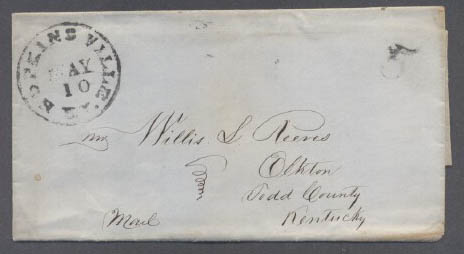 HOPKINSVILLE KY.
MAY
10
Willis L Reeves
Elkton
Todd County
Kentucky
Mail